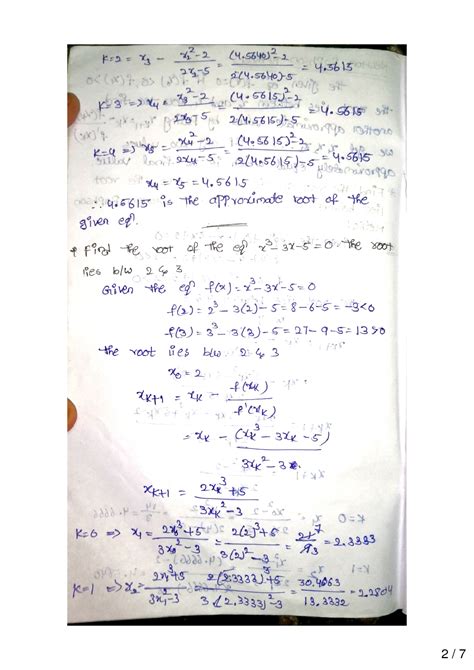 K=2 = x₃ - (x₂² - 2)/(2x - 5) = ((4.5640)² - 2)/(2(4.5640) - 5) = 4.5615
K=3 => x₄ = (x₃² - 2)/(2x₃ - 5) = ((4.5615)² - 2)/(2(4.5615) - 5) = 4.5615
K=4 => x₅ = (x₄² - 2)/(2x₄ - 5) = ((4.5615)² - 2)/(2(4.5615) - 5) = 4.5615
x₄ = x₅ = 4.5615
∴ 4.5615 is the approximate root of the
given eqⁿ.
Find the root of the eqⁿ x³ - 3x - 5 = 0 the root
lies b/w 2 & 3
Given the eqⁿ f(x) = x³ - 3x - 5 = 0
f(2) = 2³ - 3(2) - 5 = 8 - 6 - 5 = -3 < 0
f(3) = 3³ - 3(3) - 5 = 27 - 9 - 5 = 13 > 0
the root lies b/w 2 & 3
x₀ = 2
xₖ₊₁ = xₖ - f(xₖ)/f'(xₖ)
= xₖ - (xₖ³ - 3xₖ - 5)/(3xₖ² - 3)
xₖ₊₁ = (2xₖ³ + 5)/(3xₖ² - 3)
K=0 => x₁ = (2x₀³ + 5)/(3x₀² - 3) = (2(2)³ + 5)/(3(2)² - 3) = 21/9 = 2.3333
K=1 => x₂ = (2x₁³ + 5)/(3x₁² - 3) = (2(2.3333)³ + 5)/(3(2.3333)² - 3) = 30.4063/13.3332 = 2.2804
2 / 7